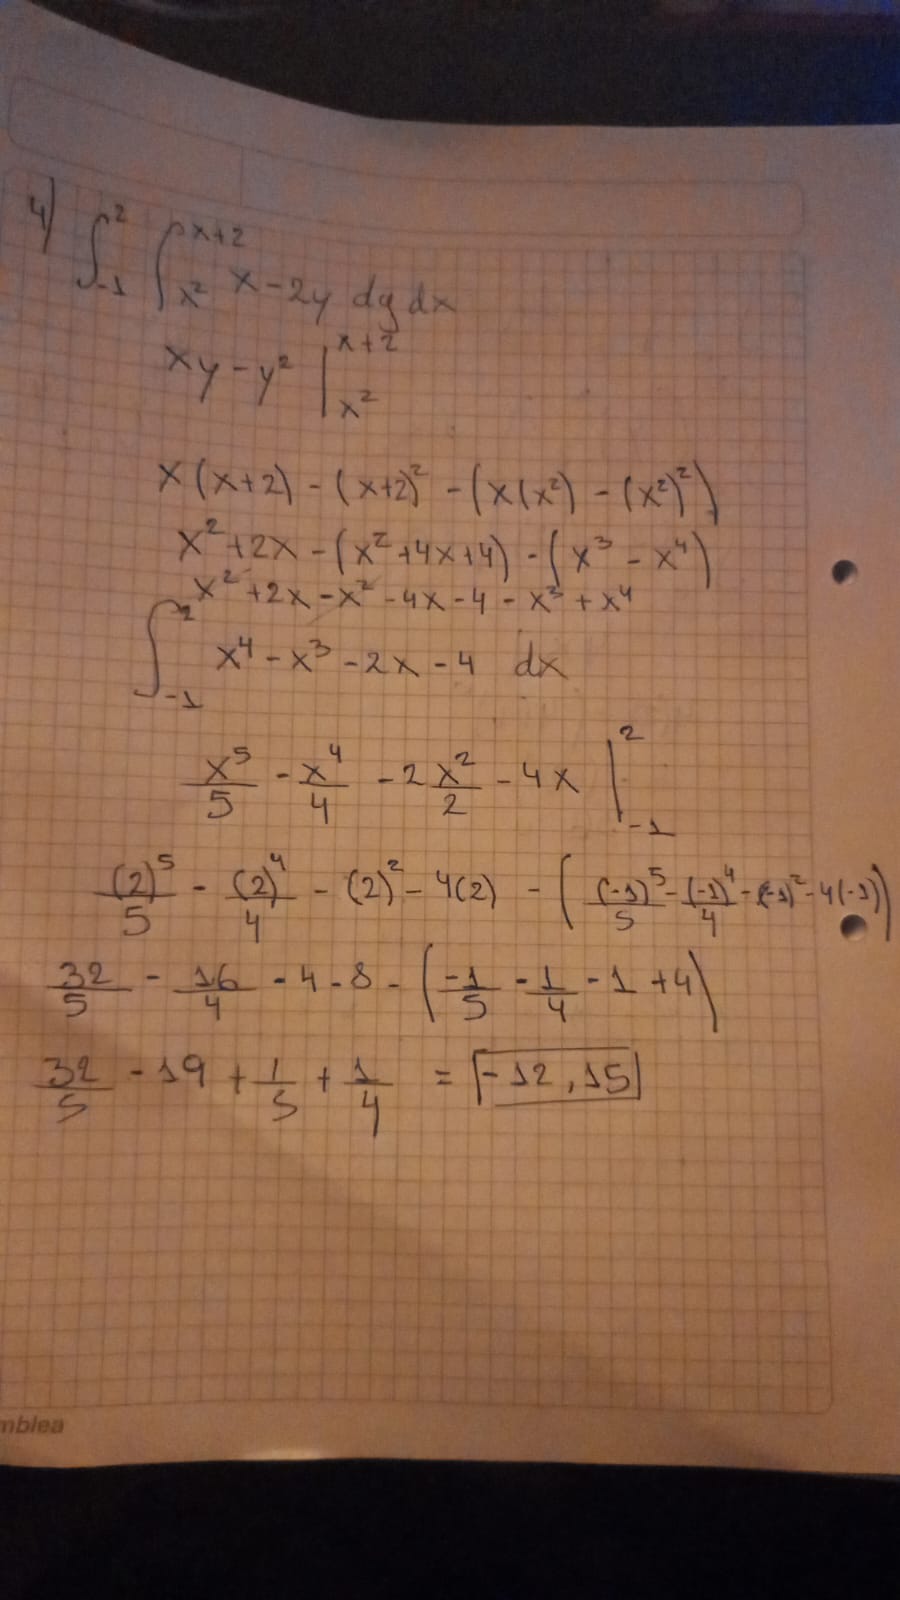 4) ∫₋₁² ∫ₓ²ˣ⁺² x - 2y dy dx
xy - y² |ₓ²ˣ⁺²
x(x+2) - (x+2)² - (x(x²) - (x²)²)
x² + 2x - (x² + 4x + 4) - (x³ - x⁴)
x² + 2x - x² - 4x - 4 - x³ + x⁴
∫₋₁² x⁴ - x³ - 2x - 4 dx
x⁵/5 - x⁴/4 - 2x²/2 - 4x |₋₁²
(2)⁵/5 - (2)⁴/4 - (2)² - 4(2) - ((-1)⁵/5 - (-1)⁴/4 - (-1)² - 4(-1))
32/5 - 16/4 - 4 - 8 - (-1/5 - 1/4 - 1 + 4)
32/5 - 19 + 1/5 + 1/4 = -12,15